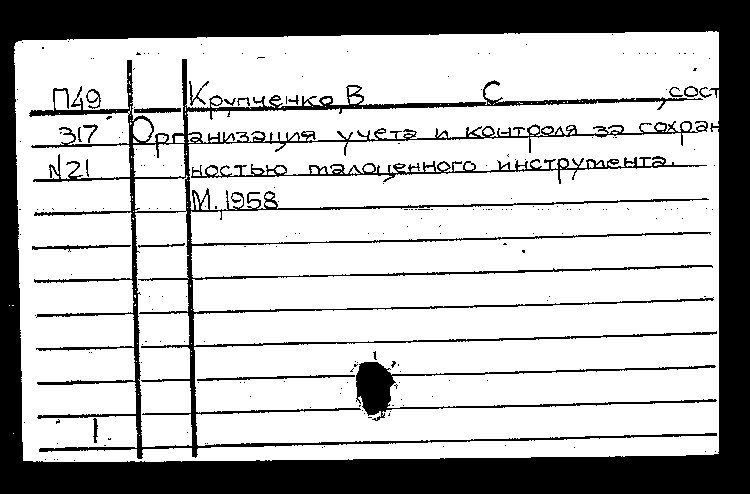 П49 Крупченко, В С , сост
317 Организация учета и контроля за сохран
N21 ностью малоценного инструмента.
М., 1958
1